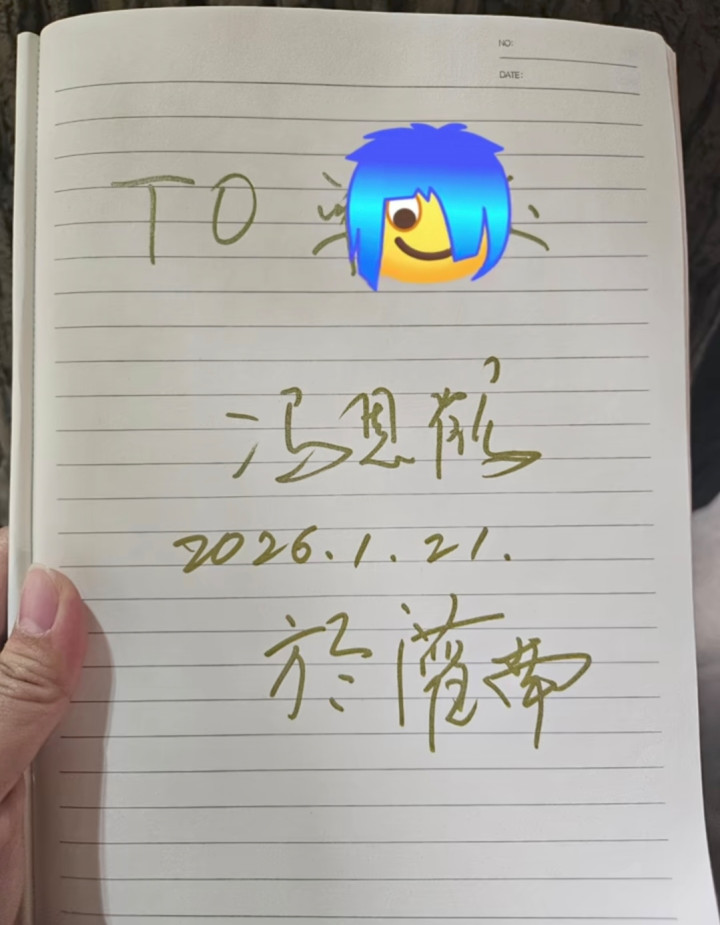 NO:
DATE:
TO
冯恩鹤
2026.1.21.
於